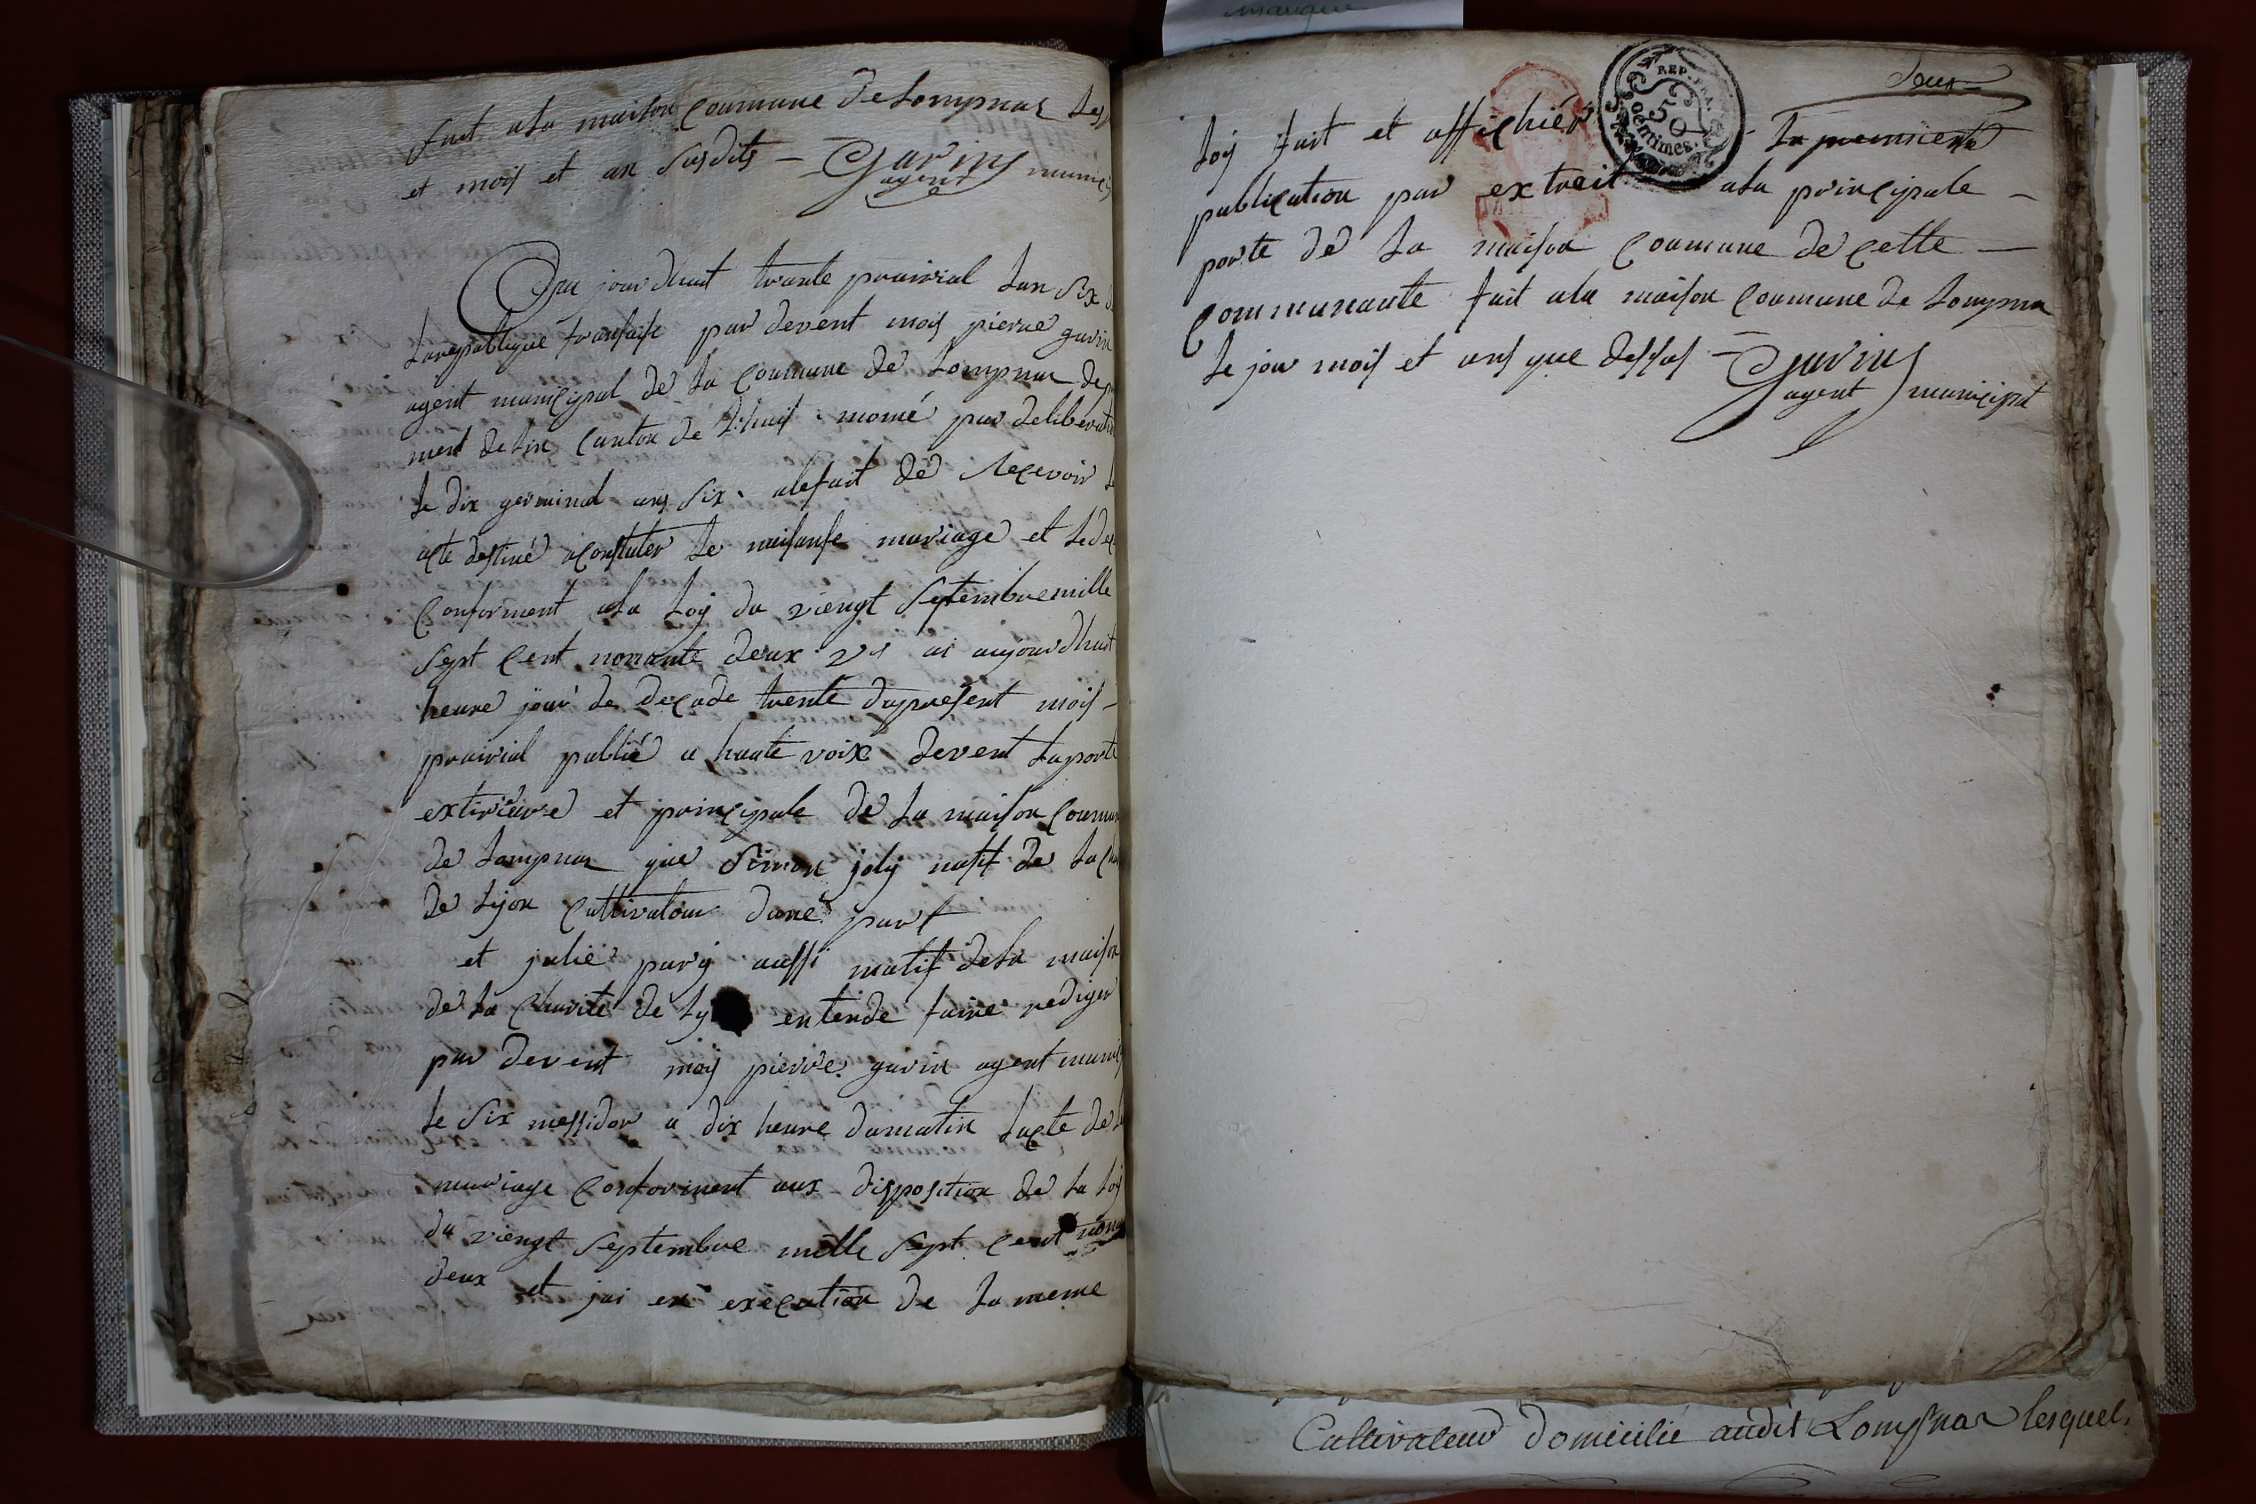 fait ala maison Commune de Lompnas les
et mois et an susdits — Gavin
agent munici
Au jourdhuit trante prairial lan six d
larepublique fransaise par devent mois pierre gavin
agent municipal de la Commune de Lompnas de
ment de lin Canton de lhuis nomé par deliberati
le dix germinal ans six alefait de Recevoir le
acte destiné aconstater le naisanse mariage et lede
Conforment ala loy du viengt septembre mille
sept Cent nonante deux vs ai aujourdhuit
heure jour de decade trente dupresent mois —
prairial publié a haute voix devent laporte
extirieure et principale de la maison Commun
de Lompnas que Simon joly natif de la Cha
de lyon Cultivateur dune part
et julie pary aussi natif dela maison
de la Charité de Ly entende faire rediger
par devent moy pierre gavin agent munici
le six messidor a dix heure dumatin lacte de le
mariage Conforment aux disposition de la loy
du viengt septembre mille sept Cent nona
deux et jai en execution de la meme
manque
deux
REP. FRA.
50
centimes.
loy fait et affichér la premiere
publication par extreit ala principale —
porte de la maison Commune de Cette —
Communaute fait ala maison Commune de Lompna
le jour mois et ans que dessus — Gavin
agent municipal
Cultivateur domicilié audit Lompnas lesquel